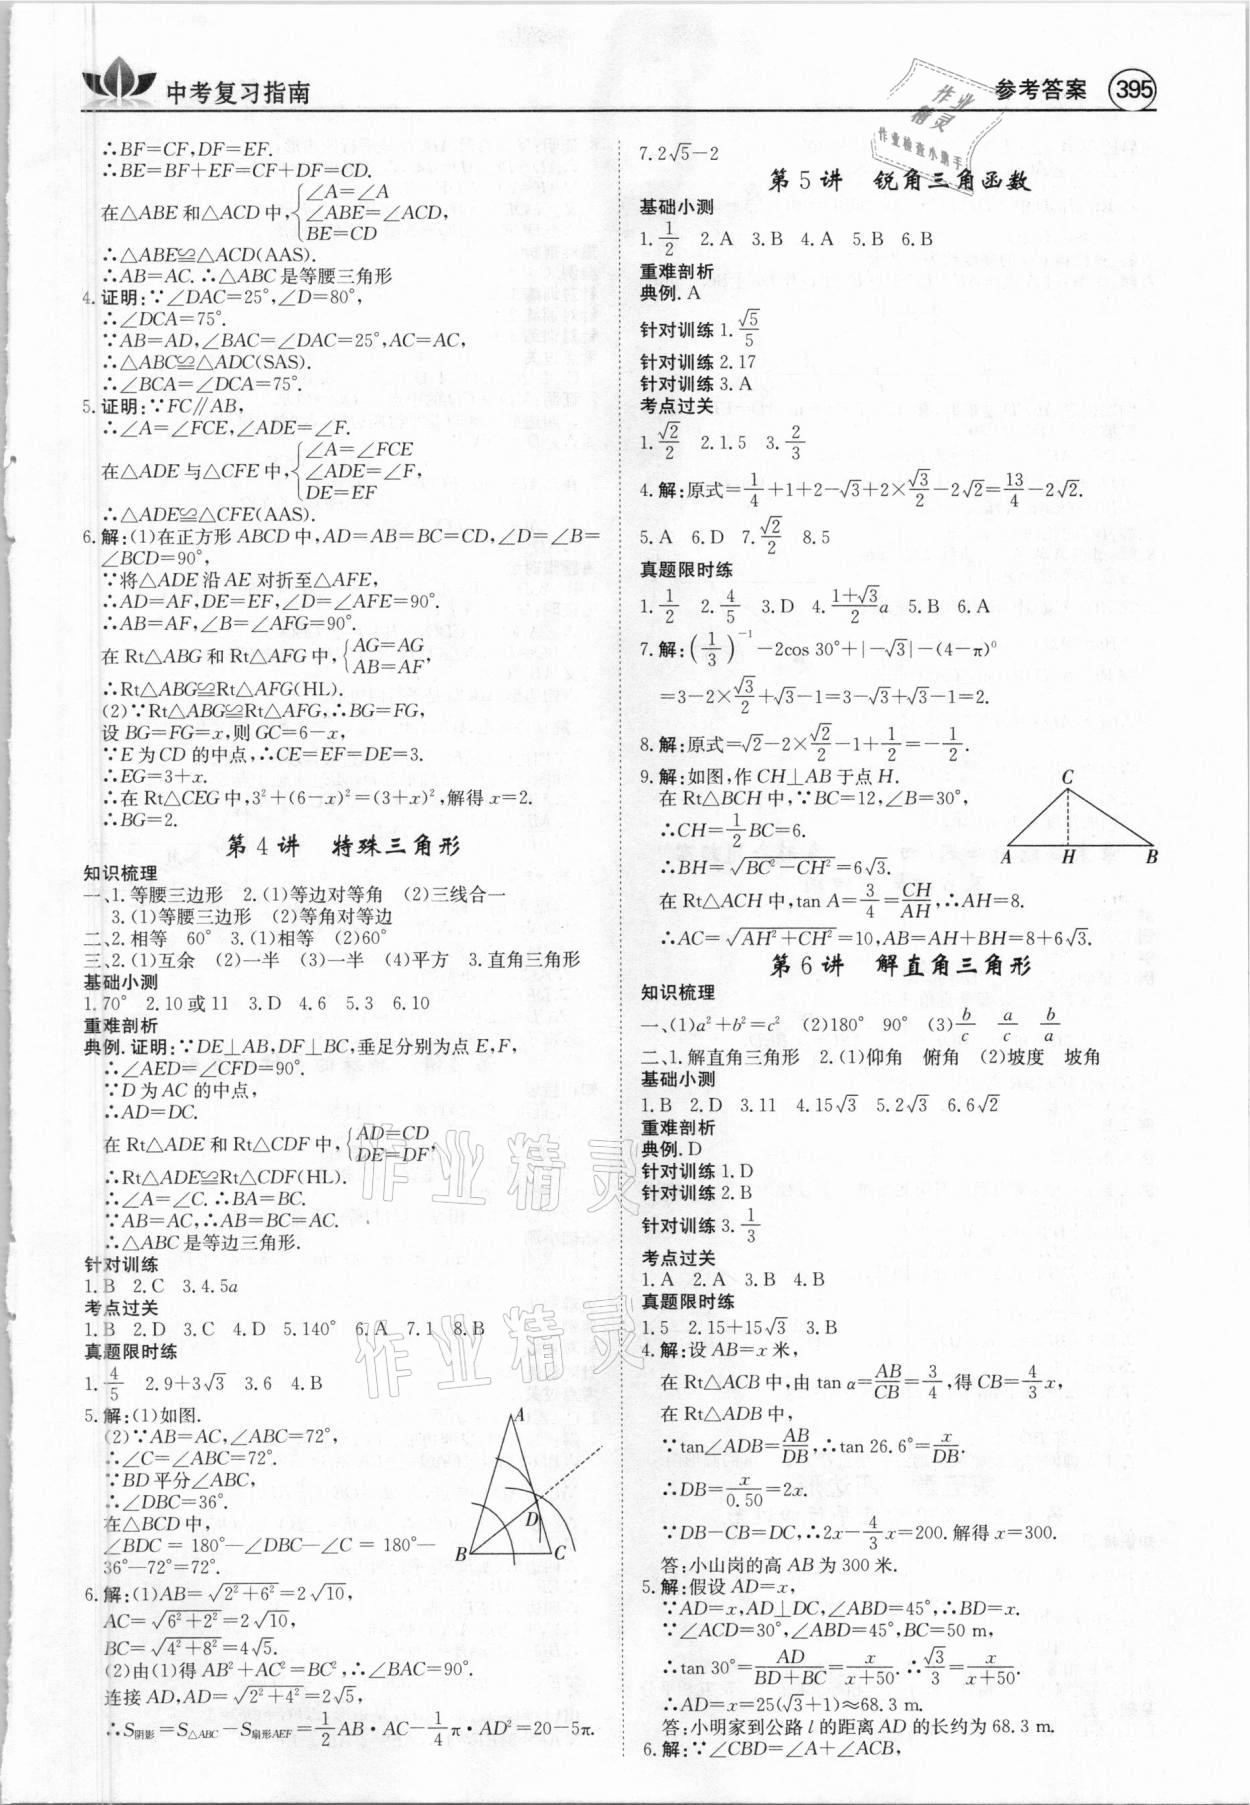 中考复习指南
参考答案 395
∴BF=CF,DF=EF.
∴BE=BF+EF=CF+DF=CD.
在△ABE和△ACD中,{∠A=∠A
∠ABE=∠ACD,
BE=CD
∴△ABE≌△ACD(AAS).
∴AB=AC.∴△ABC是等腰三角形
4.证明:∵∠DAC=25°,∠D=80°,
∴∠DCA=75°.
∵AB=AD,∠BAC=∠DAC=25°,AC=AC,
∴△ABC≌△ADC(SAS).
∴∠BCA=∠DCA=75°.
5.证明:∵FC∥AB,
∴∠A=∠FCE,∠ADE=∠F.
在△ADE与△CFE中,{∠A=∠FCE
∠ADE=∠F,
DE=EF
∴△ADE≌△CFE(AAS).
6.解:(1)在正方形ABCD中,AD=AB=BC=CD,∠D=∠B=
∠BCD=90°,
∵将△ADE沿AE对折至△AFE,
∴AD=AF,DE=EF,∠D=∠AFE=90°.
∴AB=AF,∠B=∠AFG=90°.
在Rt△ABG和Rt△AFG中,{AG=AG
AB=AF,
∴Rt△ABG≌Rt△AFG(HL).
(2)∵Rt△ABG≌Rt△AFG,∴BG=FG,
设BG=FG=x,则GC=6-x,
∵E为CD的中点,∴CE=EF=DE=3.
∴EG=3+x.
∴在Rt△CEG中,3²+(6-x)²=(3+x)²,解得x=2.
∴BG=2.
第4讲 特殊三角形
知识梳理
一、1.等腰三边形 2.(1)等边对等角 (2)三线合一
3.(1)等腰三边形 (2)等角对等边
二、2.相等 60° 3.(1)相等 (2)60°
三、2.(1)互余 (2)一半 (3)一半 (4)平方 3.直角三角形
基础小测
1.70° 2.10或11 3.D 4.6 5.3 6.10
重难剖析
典例.证明:∵DE⊥AB,DF⊥BC,垂足分别为点E,F,
∴∠AED=∠CFD=90°.
∵D为AC的中点,
∴AD=DC.
在Rt△ADE和Rt△CDF中,{AD=CD
DE=DF,
∴Rt△ADE≌Rt△CDF(HL).
∴∠A=∠C.∴BA=BC.
∵AB=AC,∴AB=BC=AC.
∴△ABC是等边三角形.
针对训练
1.B 2.C 3.4.5a
考点过关
1.B 2.D 3.C 4.D 5.140° 6.A 7.1 8.B
真题限时练
1.4/5 2.9+3√3 3.6 4.B
5.解:(1)如图.
(2)∵AB=AC,∠ABC=72°,
∴∠C=∠ABC=72°.
∵BD平分∠ABC,
∴∠DBC=36°.
在△BCD中,
∠BDC=180°-∠DBC-∠C=180°-
36°-72°=72°.
A
D
B C
6.解:(1)AB=√(2²+6²)=2√10,
AC=√(6²+2²)=2√10,
BC=√(4²+8²)=4√5.
(2)由(1)得AB²+AC²=BC²,∴∠BAC=90°.
连接AD,AD=√(2²+4²)=2√5,
∴S阴影=S△ABC-S扇形AEF=1/2AB·AC-1/4π·AD²=20-5π.
7.2√5-2
第5讲 锐角三角函数
基础小测
1.1/2 2.A 3.B 4.A 5.B 6.B
重难剖析
典例.A
针对训练1.√5/5
针对训练2.17
针对训练3.A
考点过关
1.√2/2 2.1.5 3.2/3
4.解:原式=1/4+1+2-√3+2×√3/2-2√2=13/4-2√2.
5.A 6.D 7.√2/2 8.5
真题限时练
1.1/2 2.4/5 3.D 4.(1+√3)/2 a 5.B 6.A
7.解:(1/3)⁻¹-2cos 30°+|-√3|-(4-π)⁰
=3-2×√3/2+√3-1=3-√3+√3-1=2.
8.解:原式=√2-2×√2/2-1+1/2=-1/2.
9.解:如图,作CH⊥AB于点H.
在Rt△BCH中,∵BC=12,∠B=30°,
∴CH=1/2BC=6.
∴BH=√(BC²-CH²)=6√3.
在Rt△ACH中,tan A=3/4=CH/AH,∴AH=8.
∴AC=√(AH²+CH²)=10,AB=AH+BH=8+6√3.
C
A H B
第6讲 解直角三角形
知识梳理
一、(1)a²+b²=c² (2)180° 90° (3)b/c a/c b/a
二、1.解直角三角形 2.(1)仰角 俯角 (2)坡度 坡角
基础小测
1.B 2.D 3.11 4.15√3 5.2√3 6.6√2
重难剖析
典例.D
针对训练1.D
针对训练2.B
针对训练3.1/3
考点过关
1.A 2.A 3.B 4.B
真题限时练
1.5 2.15+15√3 3.B
4.解:设AB=x米,
在Rt△ACB中,由tan α=AB/CB=3/4,得CB=4/3x,
在Rt△ADB中,
∵tan∠ADB=AB/DB,∴tan 26.6°=x/DB.
∴DB=x/0.50=2x.
∵DB-CB=DC,∴2x-4/3x=200.解得x=300.
答:小山岗的高AB为300米.
5.解:假设AD=x,
∵AD=x,AD⊥DC,∠ABD=45°,∴BD=x.
∵∠ACD=30°,∠ABD=45°,BC=50 m,
∴tan 30°=AD/(BD+BC)=x/(x+50).∴√3/3=x/(x+50).
∴AD=x=25(√3+1)≈68.3 m.
答:小明家到公路l的距离AD的长约为68.3 m.
6.解:∵∠CBD=∠A+∠ACB,
作业精灵
作业检查小助手
作业精灵
作业精灵